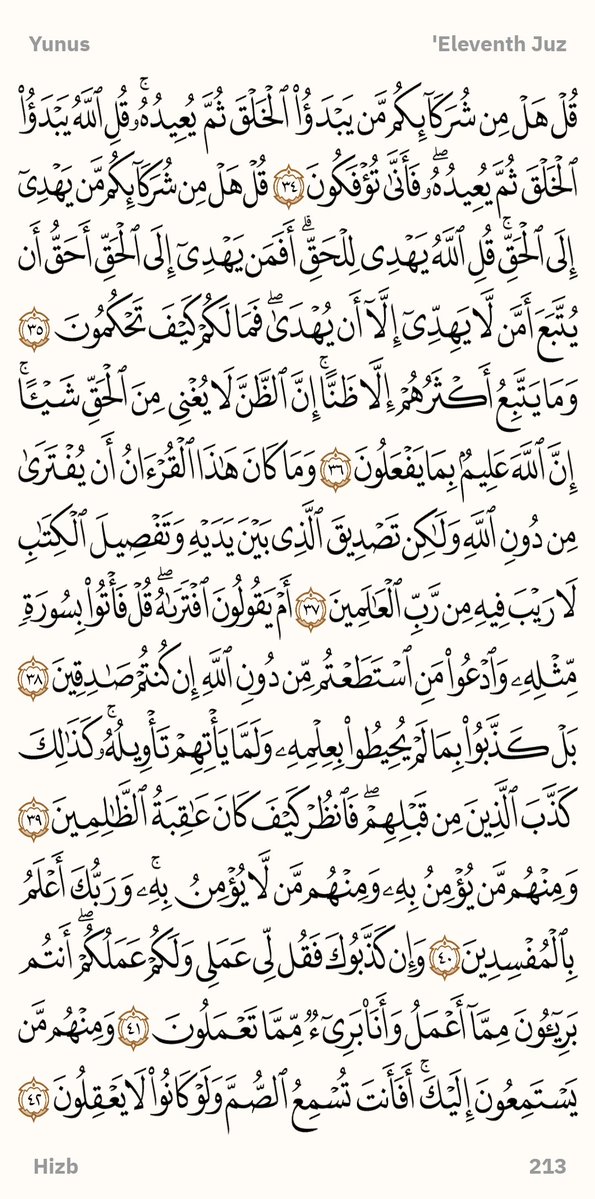 Yunus
'Eleventh Juz
قُلۡ هَلۡ مِن شُرَكَآئِكُم مَّن يَبۡدَؤُاْ ٱلۡخَلۡقَ ثُمَّ يُعِيدُهُۥۚ قُلِ ٱللَّهُ يَبۡدَؤُاْ
ٱلۡخَلۡقَ ثُمَّ يُعِيدُهُۥۖ فَأَنَّىٰ تُؤۡفَكُونَ ٣٤ قُلۡ هَلۡ مِن شُرَكَآئِكُم مَّن يَهۡدِيٓ
إِلَى ٱلۡحَقِّۚ قُلِ ٱللَّهُ يَهۡدِي لِلۡحَقِّۗ أَفَمَن يَهۡدِيٓ إِلَى ٱلۡحَقِّ أَحَقُّ أَن
يُتَّبَعَ أَمَّن لَّا يَهِدِّيٓ إِلَّآ أَن يُهۡدَىٰۖ فَمَا لَكُمۡ كَيۡفَ تَحۡكُمُونَ ٣٥
وَمَا يَتَّبِعُ أَكۡثَرُهُمۡ إِلَّا ظَنًّاۚ إِنَّ ٱلظَّنَّ لَا يُغۡنِي مِنَ ٱلۡحَقِّ شَيۡـًٔاۚ
إِنَّ ٱللَّهَ عَلِيمُۢ بِمَا يَفۡعَلُونَ ٣٦ وَمَا كَانَ هَٰذَا ٱلۡقُرۡءَانُ أَن يُفۡتَرَىٰ
مِن دُونِ ٱللَّهِ وَلَٰكِن تَصۡدِيقَ ٱلَّذِي بَيۡنَ يَدَيۡهِ وَتَفۡصِيلَ ٱلۡكِتَٰبِ
لَا رَيۡبَ فِيهِ مِن رَّبِّ ٱلۡعَٰلَمِينَ ٣٧ أَمۡ يَقُولُونَ ٱفۡتَرَىٰهُۖ قُلۡ فَأۡتُواْ بِسُورَةٖ
مِّثۡلِهِۦ وَٱدۡعُواْ مَنِ ٱسۡتَطَعۡتُم مِّن دُونِ ٱللَّهِ إِن كُنتُمۡ صَٰدِقِينَ ٣٨
بَلۡ كَذَّبُواْ بِمَا لَمۡ يُحِيطُواْ بِعِلۡمِهِۦ وَلَمَّا يَأۡتِهِمۡ تَأۡوِيلُهُۥۚ كَذَٰلِكَ
كَذَّبَ ٱلَّذِينَ مِن قَبۡلِهِمۡۖ فَٱنظُرۡ كَيۡفَ كَانَ عَٰقِبَةُ ٱلظَّٰلِمِينَ ٣٩
وَمِنۡهُم مَّن يُؤۡمِنُ بِهِۦ وَمِنۡهُم مَّن لَّا يُؤۡمِنُ بِهِۦۚ وَرَبُّكَ أَعۡلَمُ
بِٱلۡمُفۡسِدِينَ ٤٠ وَإِن كَذَّبُوكَ فَقُل لِّي عَمَلِي وَلَكُمۡ عَمَلُكُمۡۖ أَنتُم
بَرِيٓـُٔونَ مِمَّآ أَعۡمَلُ وَأَنَا۠ بَرِيٓءٞ مِّمَّا تَعۡمَلُونَ ٤١ وَمِنۡهُم مَّن
يَسۡتَمِعُونَ إِلَيۡكَۚ أَفَأَنتَ تُسۡمِعُ ٱلصُّمَّ وَلَوۡ كَانُواْ لَا يَعۡقِلُونَ ٤٢
Hizb
213